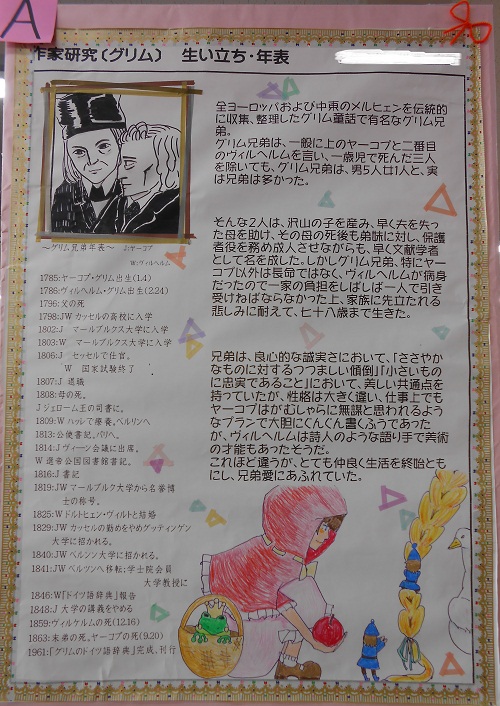 A
作家研究(グリム) 生い立ち・年表
全ヨーロッパおよび中東のメルヒェンを伝統的
に収集、整理したグリム童話で有名なグリム兄
弟。
グリム兄弟は、一般に上のヤーコプと二番目
のヴィルヘルムを言い、一歳児で死んだ三人
を除いても、グリム兄弟は、男5人女1人と、実
は兄弟は多かった。
そんな2人は、沢山の子を産み、早く夫を失っ
た母を助け、その母の死後も弟妹に対し、保護
者役を務め成人させながらも、早く文献学者
として名を成した。しかしグリム兄弟、特にヤー
コプ以外は長命ではなく、ヴィルヘルムが病身
だったので一家の負担をしばしば一人で引き
受けねばならなかった上、家族に先立たれる
悲しみに耐えて、七十八歳まで生きた。
兄弟は、良心的な誠実さにおいて、「ささやか
なものに対するつつましい傾倒」「小さいもの
に忠実であること」において、美しい共通点を
持っていたが、性格は大きく違い、仕事上でも
ヤーコプはがむしゃらに無謀と思われるよう
なプランで大胆にぐんぐん書くふうであった
が、ヴィルヘルムは詩人のような語り手で美術
の才能もあったそうだ。
これほど違うが、とても仲良く生活を終始とも
にし、兄弟愛にあふれていた。
～グリム兄弟年表～ J:ヤーコプ
W:ヴィルヘルム
1785:ヤーコプ・グリム出生(1.4)
1786:ヴィルヘルム・グリム出生(2.24)
1796:父の死
1798:JWカッセルの高校に入学
1802:J マールブルクス大学に入学
1803:W マールブルクス大学に入学
1806:J セッセルで仕官。
W 国家試験終了
1807:J 退職
1808:母の死。
Jジェローム王の司書に。
1809:Wハレで療養。ベルリンへ
1813:公使書記。パリへ。
1814:Jヴィーン会議に出席。
W選帝公国図書館書記。
1816:J書記
1819:JWマールブルク大学から名誉博
士の称号。
1825:Wドルトヒェン・ヴィルトと結婚
1829:JWカッセルの勤めをやめゲッティンゲン
大学に招かれる。
1840:JWベルンン大学に招かれる。
1841:JWベルンンへ移転;学士院会員
大学教授に
1846:W「ドイツ語辞典」報告
1848:J 大学の講義をやめる
1859:ヴィルヘルムの死(12.16)
1863:末弟の死。ヤーコプの死(9.20)
1961:「グリムのドイツ語辞典」完成、刊行